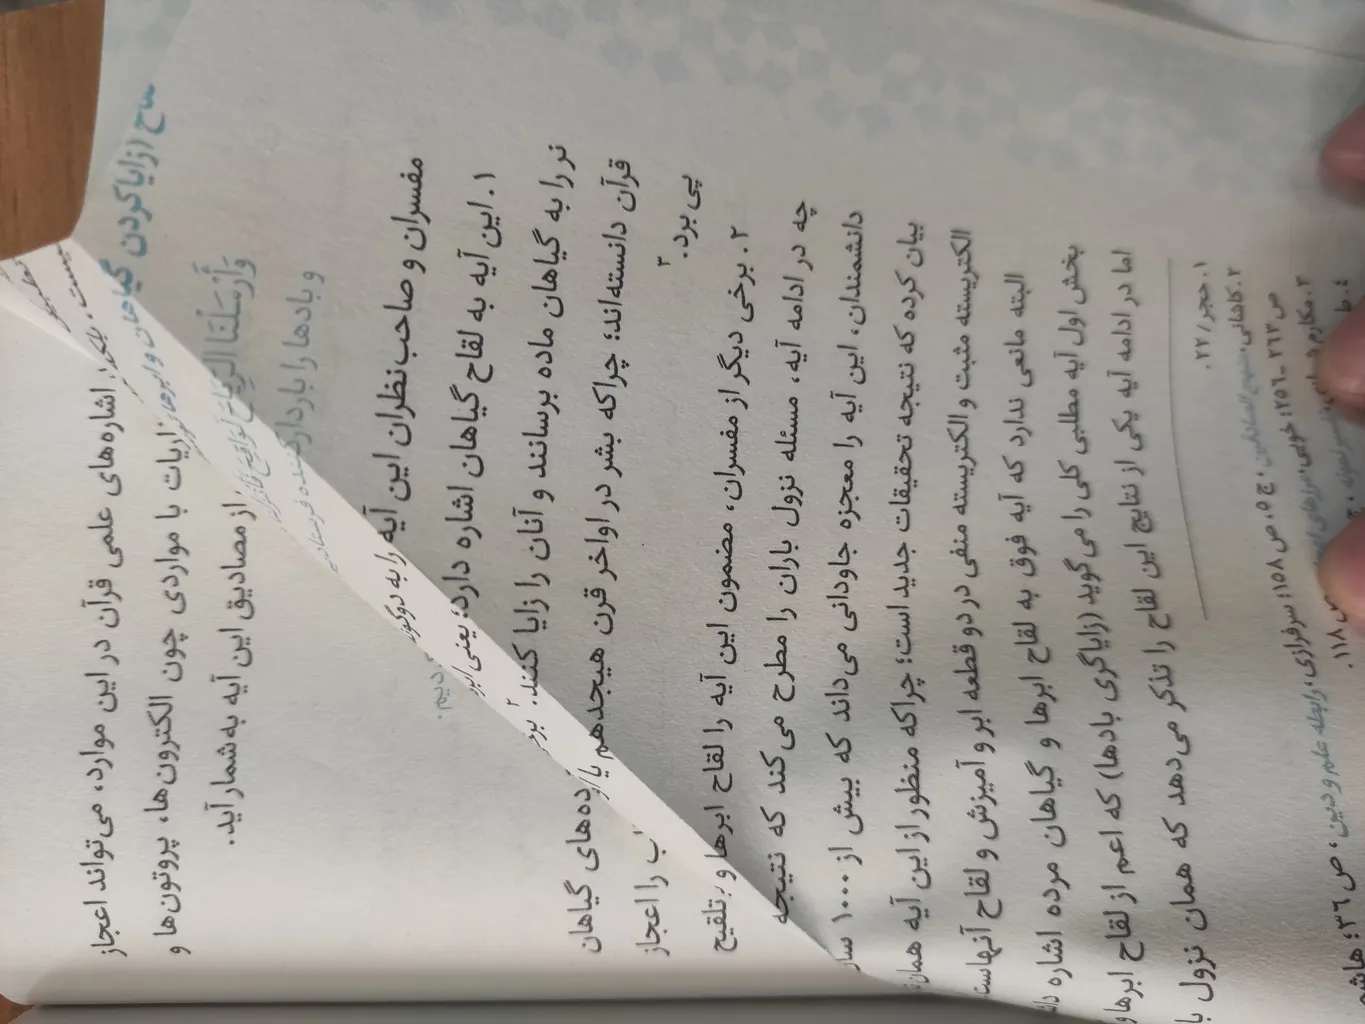 اشاره‌های علمی قرآن در این موارد، می‌تواند اعجاز
ذاریات با مواردی چون الکترون‌ها، پروتون‌ها و
از مصادیق این آیه به شمار آید.
لقاح (زایا کردن گیاهان و ابرها)
وَأَرْسَلْنَا الرِّيَاحَ لَوَاقِحَ
و بادها را باردارکننده فرستادیم
مفسران و صاحب‌نظران این آیه را به دو گونه
۱. این آیه به لقاح گیاهان اشاره دارد؛ یعنی
نر را به گیاهان ماده برسانند و آنان را زایا کنند.۲
های گیاهان
قرآن دانسته‌اند؛ چراکه بشر در اواخر قرن هیجدهم یا
را اعجاز
پی برد.۳
۲. برخی دیگر از مفسران، مضمون این آیه را لقاح ابرها و
تلقیح
چه در ادامه آیه، مسئله نزول باران را مطرح می‌کند که نتیجه
دانشمندان، این آیه را معجزه جاودانی می‌داند که بیش از ۱۰۰۰
بیان کرده که نتیجه تحقیقات جدید است؛ چراکه منظور از این آیه همان
الکتریسته مثبت و الکتریسته منفی در دو قطعه ابر و آمیزش و لقاح آنهاست
البته مانعی ندارد که آیه فوق به لقاح ابرها و گیاهان مرده اشاره
بخش اول آیه مطلبی کلی را می‌گوید (زایاگری بادها) که اعم از لقاح ابرها و
اما در ادامه آیه یکی از نتایج این لقاح را تذکر می‌دهد که همان نزول
۱. حجر/ ۲۲.
۲. کاشانی، منهج الصادقین، ج ۵، ص ۱۵۸؛ سرفرازی، رابطه علم و دین، ص ۳۶؛
۳. مکارم
ص ۲۶۳ـ۲۵۶؛ خویی، مرزهای
ص ۱۱۸.
۴.